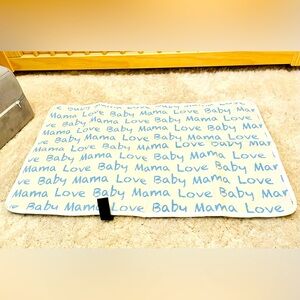 Mama Love Baby Mama Love Baby Mar
Love Baby Mama Love Baby Mama
Mama Love Baby Mama Love Baby Mar
ve Baby Mama Love Baby Mama Love
Mama Love Baby Mama Love Baby Mar
ve Baby Mama Love Baby Mama Love
Mama Love Baby Mama Love Baby Mar
ve Baby Mama Love Baby Mama Love